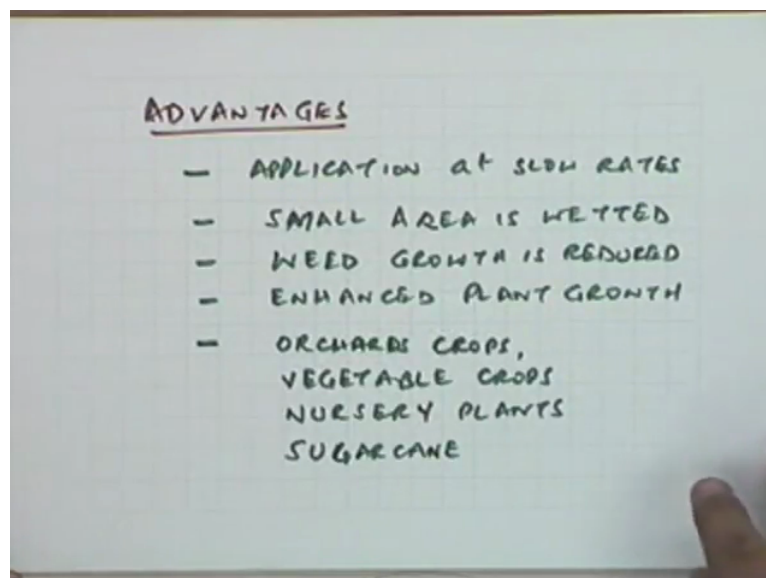 ADVANTAGES
- APPLICATION at SLOW RATES
- SMALL AREA IS WETTED
- WEED GROWTH IS REDUCED
- ENHANCED PLANT GROWTH
- ORCHARDS CROPS,
VEGETABLE CROPS
NURSERY PLANTS
SUGARCANE